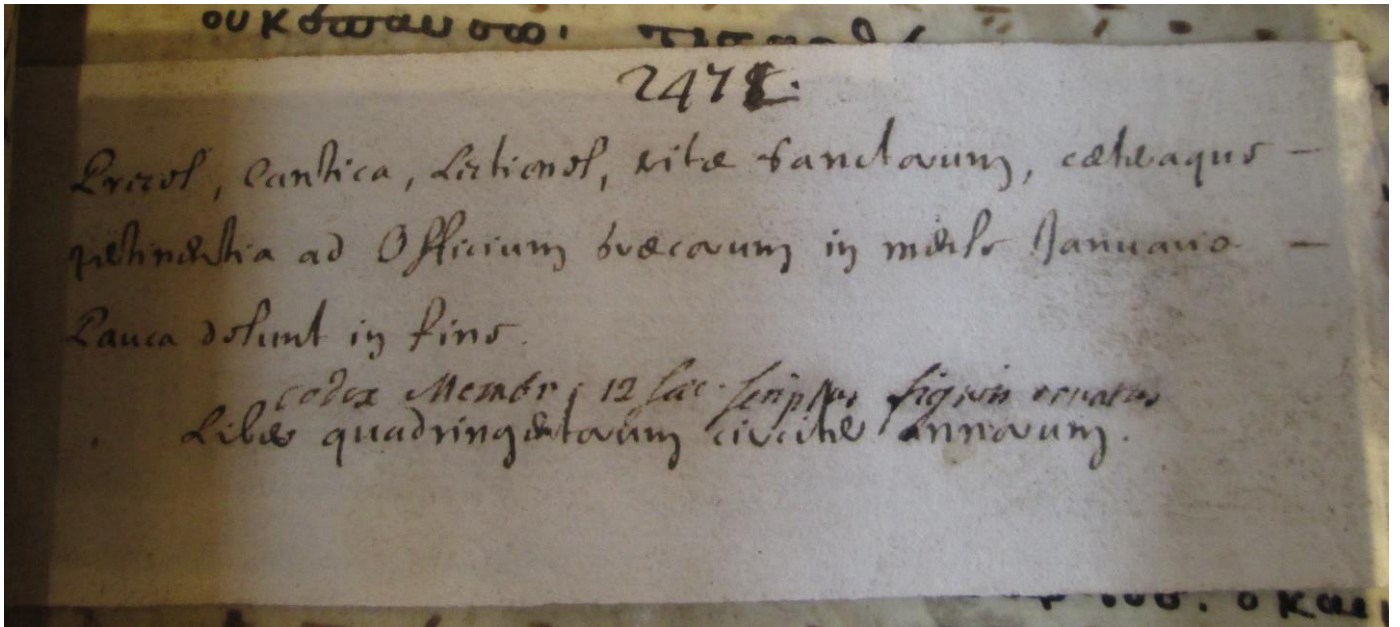 ουκόπαυσω.
247
Preces, Cantica, Lectiones, vitæ Sanctorum, cæteraque —
pertinentia ad Officium Græcorum in mense Januario —
Pauca desunt in fine.
codex Membr. 12 sæc. scriptus figuris ornatus
Liber quadringentorum circiter annorum.
του. ο και